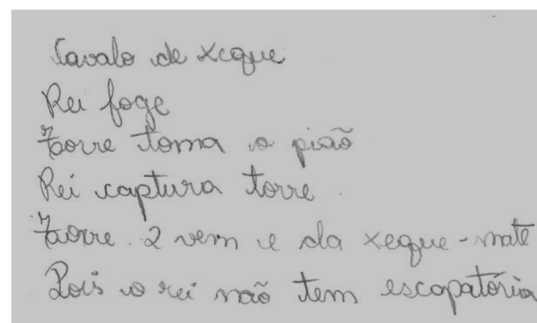 Cavalo de xeque
Rei foge
Torre toma o pião
Rei captura torre.
Torre 2 vem e da xeque-mate
Pois o rei não tem escapatória